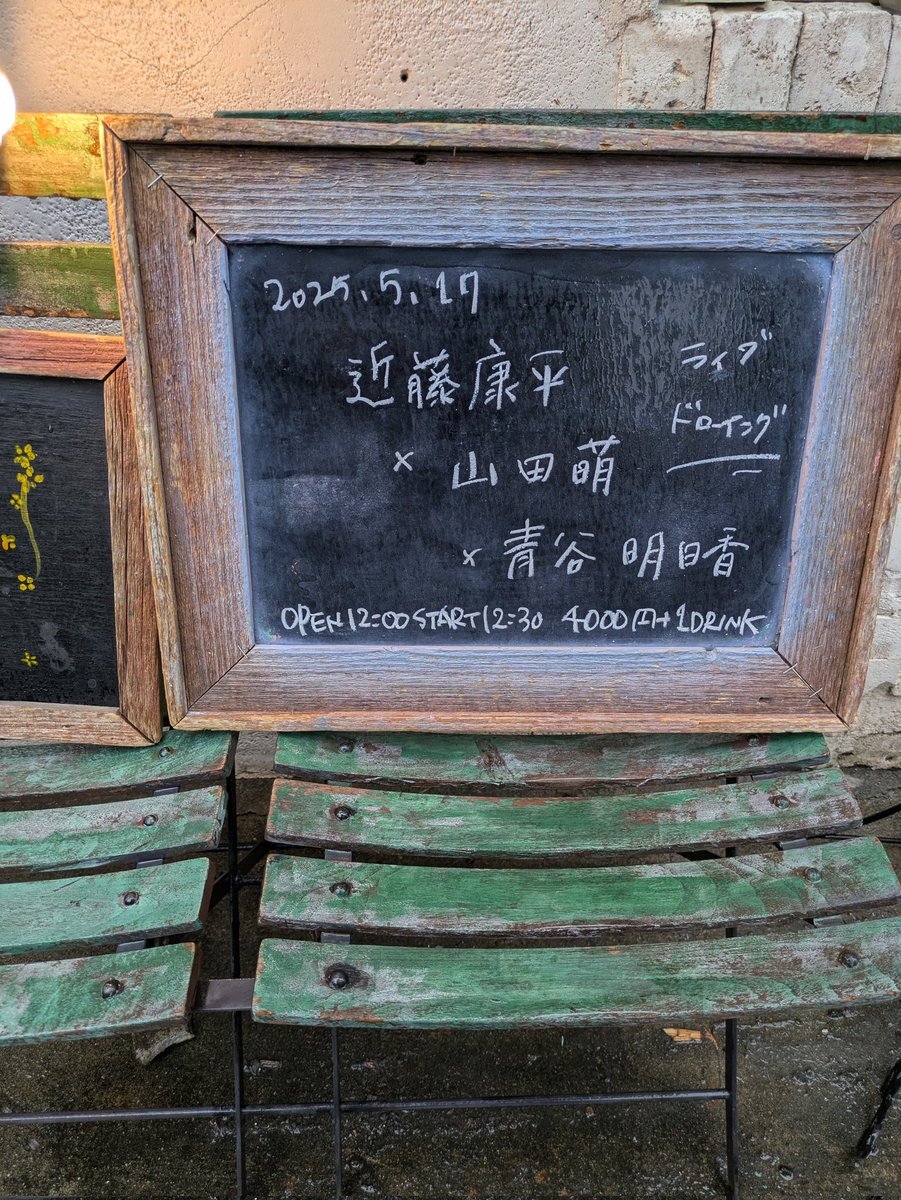 2025.5.17
近藤康平
× 山田萌
× 青谷 明日香
ライブ
ドローイング
OPEN12:00 START12:30 4000円+1DRINK